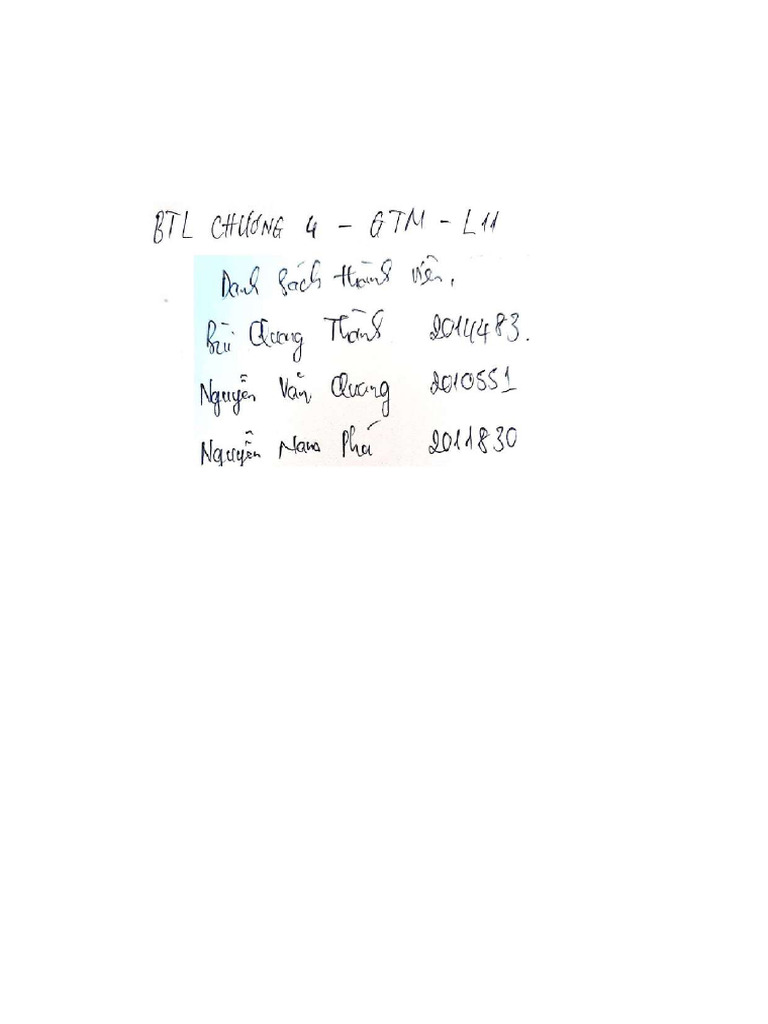 BTL CHƯƠNG 4 - GTM - L11
Danh sách thành viên.
Bùi Quang Thành 2014483.
Nguyễn Văn Quang 2010551
Nguyễn Nam Phá 2011830